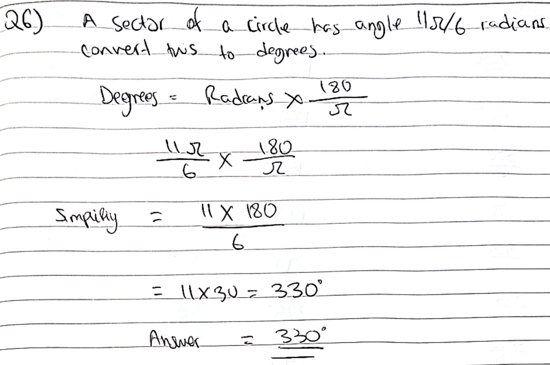 Q6) A sector of a circle has angle 11π/6 radians.
convert this to degrees.
Degrees = Radians × 180/π
11π/6 × 180/π
Simplify = 11 × 180/6
= 11×30 = 330°
Answer = 330°